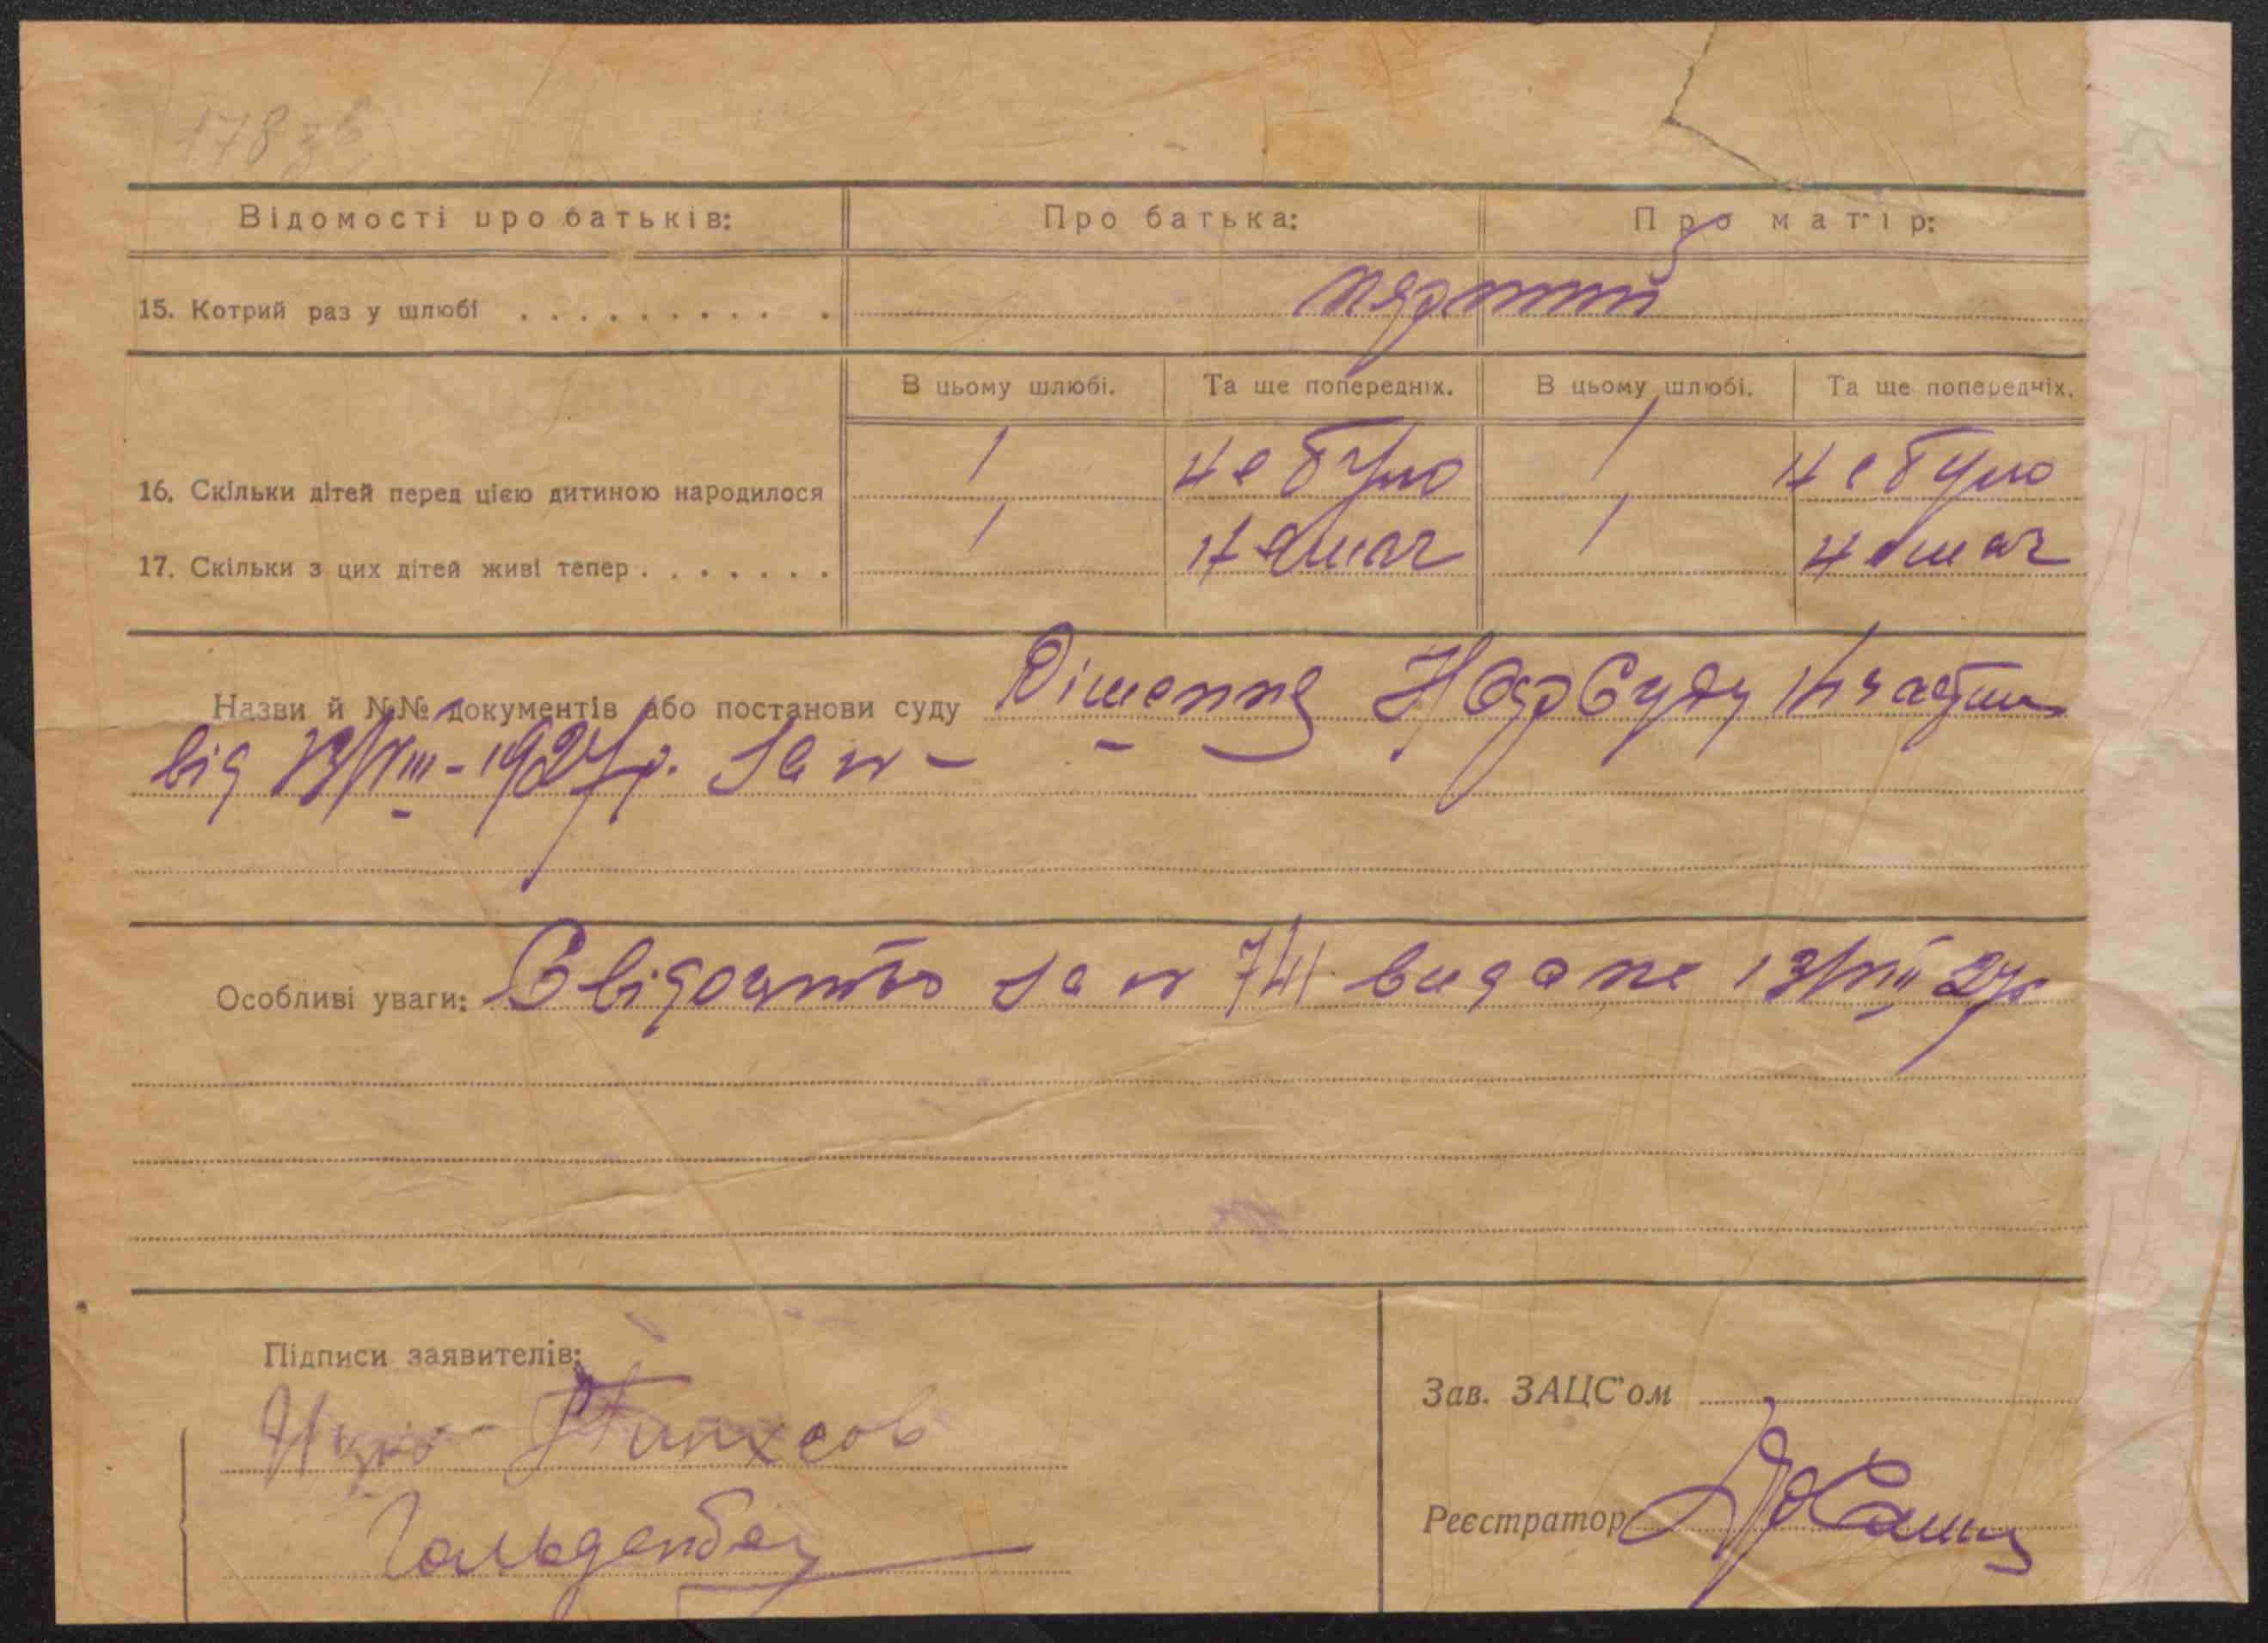 178 зв.
Відомості про батьків: Про батька: Про матір:
15. Котрий раз у шлюбі . . . . . . . . . . .
В цьому шлюбі. Та ще попередніх. В цьому шлюбі. Та ще попередніх.
16. Скільки дітей перед цією дитиною народилося 1 не було 1 не було
17. Скільки з цих дітей живі тепер . . . . . . . 1 немає 1 немає
Назви й №№ документів або постанови суду Рішення НарСуду
від 13/VIII-1927р. за № -
Особливі уваги: Свідоцтво за № 741 видане 13/VIII 27р
Підписи заявителів:
Пинхсов
Гольденбер
Зав. ЗАЦС'ом
Реєстратор